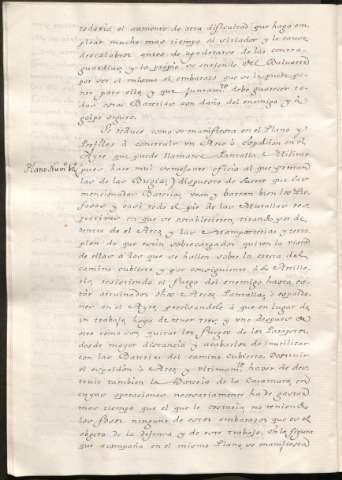 todavía el aumento de otra dificultad que haga em-
plear mucho mas tiempo al sitiador y le cause
descalabros antes de apoderarse de las contra-
guardias; y lo propio se entiende del Baluarte
por ser el mismo el embarazo que se le puede po-
ner para ello y que juntam.te debe guarecer to-
das estas Baterias con daño del enemigo y á
golpe seguro.
Se reduce como se manifiesta en el Plano y
Perfiles á construir un Arco ó Espaldon en el
Plano Num.
Ayre que puede llamarse Pantalla Militar
pues hace muy semejante oficio al que
las de las Bugias; dispuesto de suerte que las
mencionadas Baterias vean y barran bien los
fosos y casi todo el pie de las Murallas res-
pectivas en que se establecieren, tirando por de-
bajo de el Arco, y las Mamposterias y terra-
plen de que están sobrecargados quiten la vista
de ellas á los que se hallen sobre la cresta del
camino cubierto y por consiguiente á la Artille-
ria, resistiendo el fuego del enemigo hasta es-
tar arruinados dhos Arcos, Pantallas, ó espaldo-
nes en el Ayre, precisandole á que en lugar de
un trabajo haya de tener tres, y uno despues de
otro como son, quitar los fuegos de los Parapetos,
desde mayor distancia y acabarlos de inutilizar
con las Baterias del camino cubierto, destruir
el espaldon ó Arco y ultimam.te haver de des-
truir tambien la Bateria de la Casamata, en
cuyas operaciones necesariamente ha de gastar
mas tiempo que el que le costaria no teniendo
los fosos ninguno de estos embarazos que es el
objeto de la defensa y de este trabajo. En la figura
que acompaña en el mismo Plano, se manifiesta